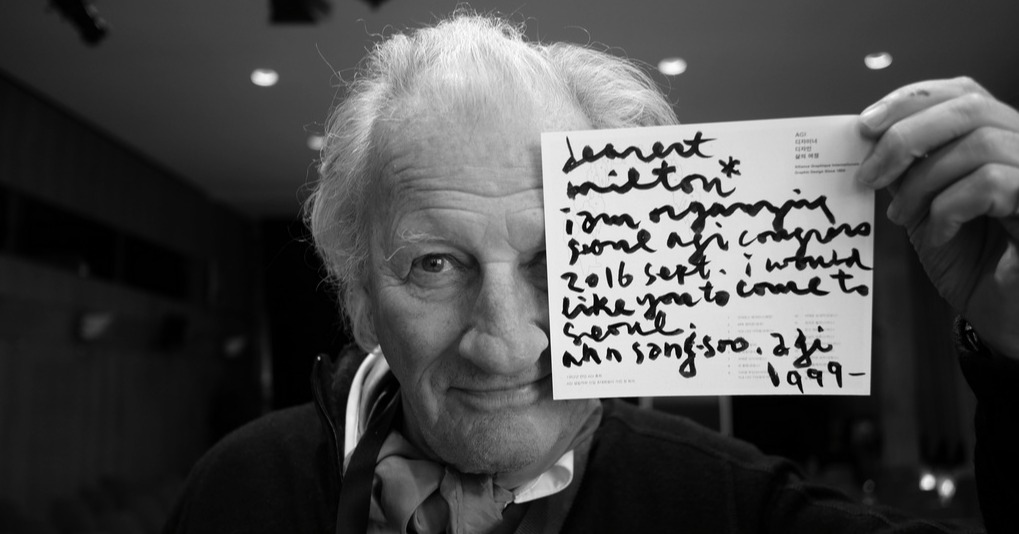 dearest
milton*
i am organizing
seoul agi congress
2016 sept. i would
like you to come to
seoul.
ahn sang-soo. agi
1999-
AGI
디자이너
디자인
삶의 여정
Alliance Graphique Internationale
Graphic Design Since 1950